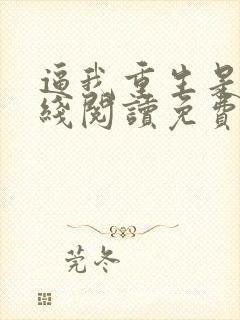 逼我重生是
綫閱讀免費
莞冬